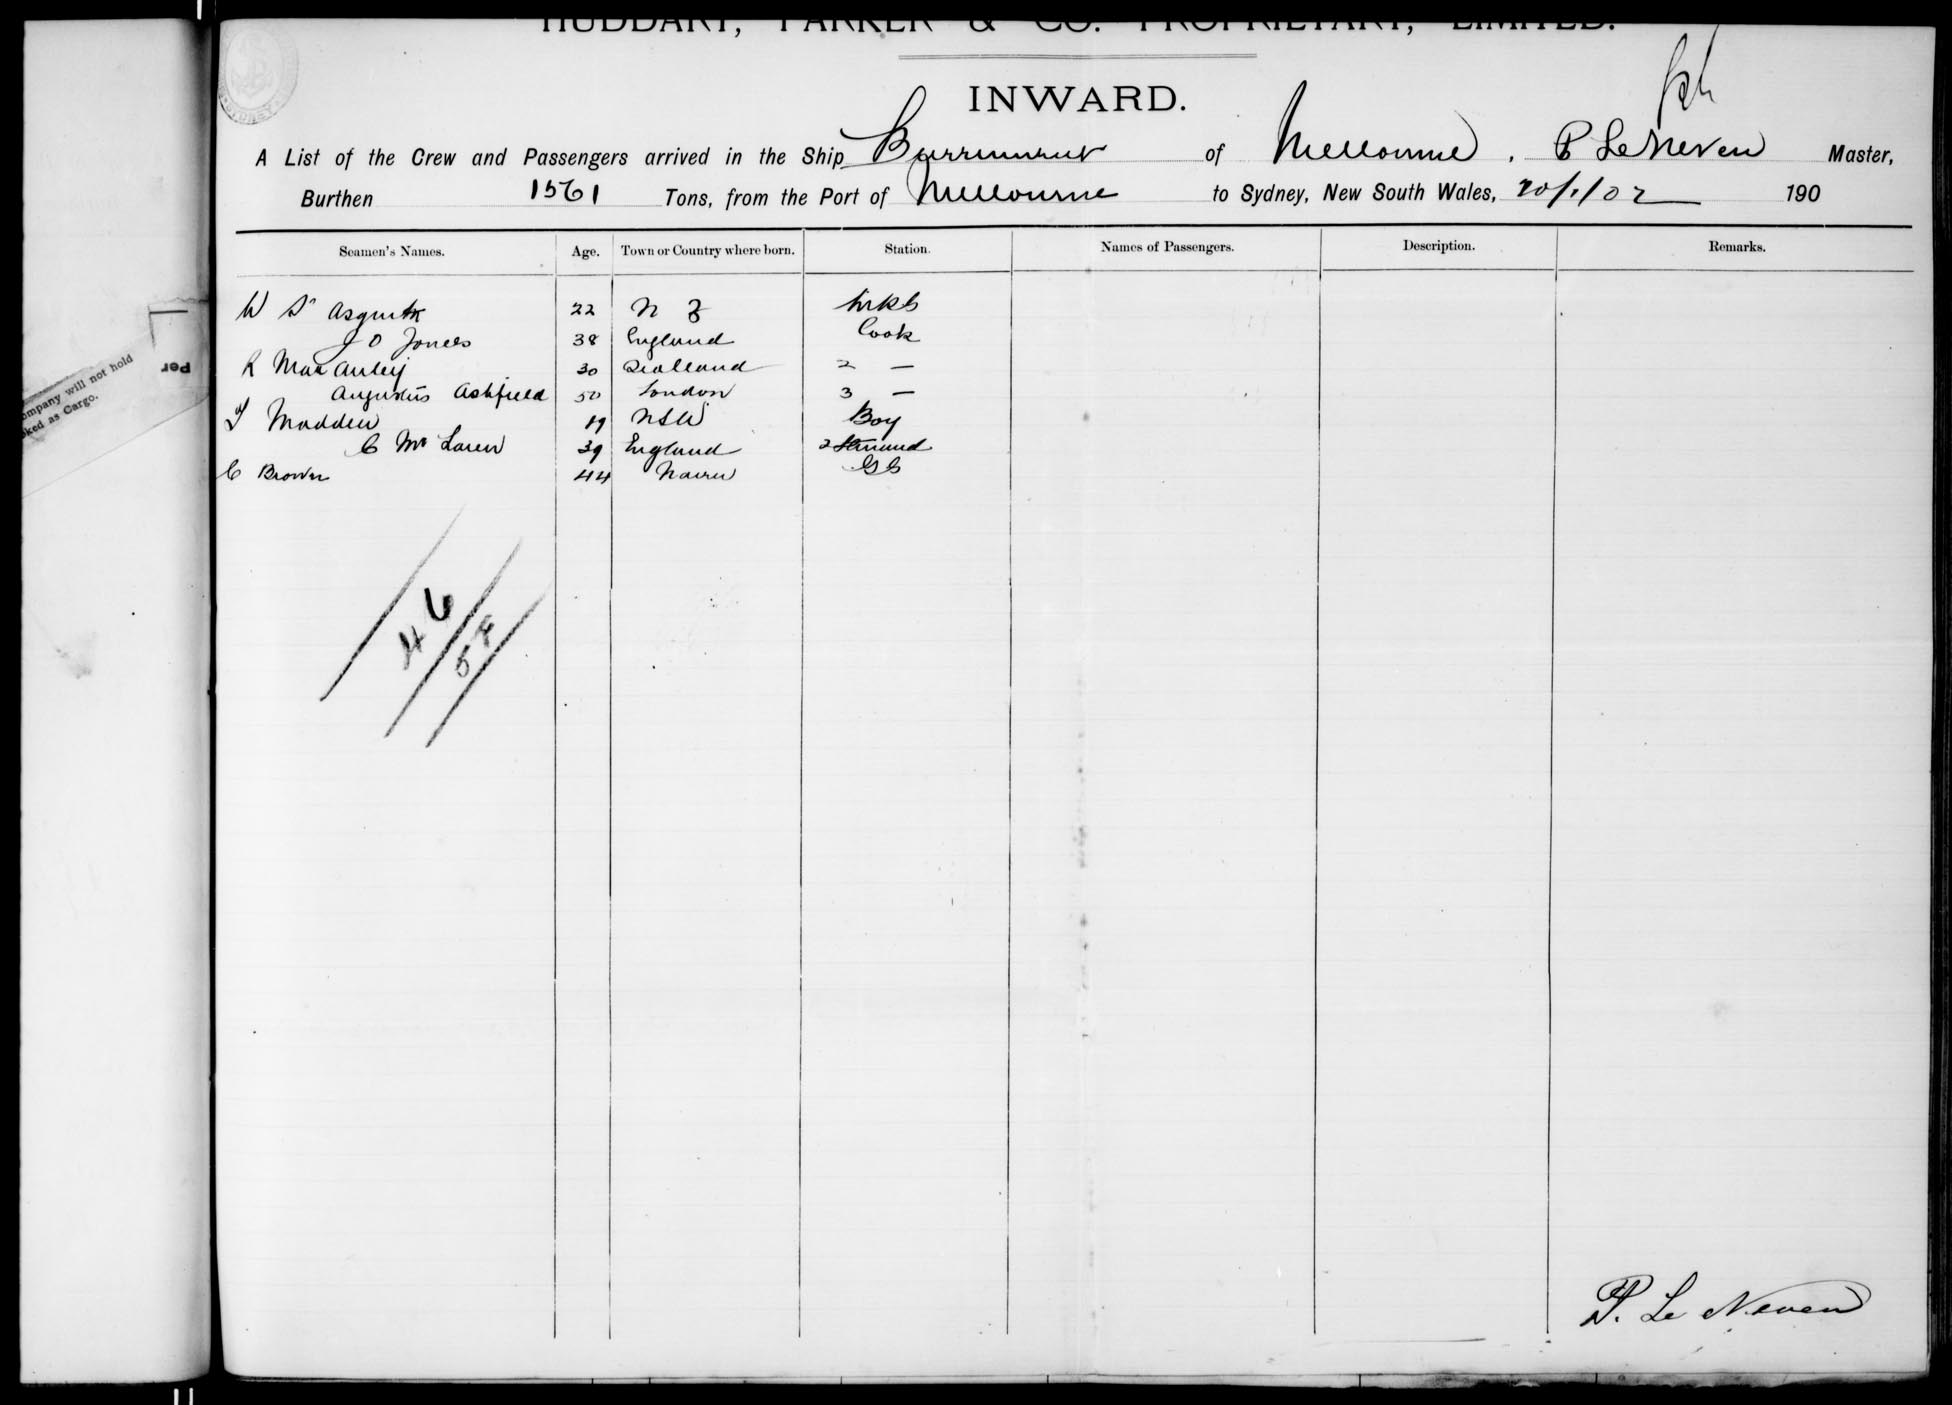 HUDDART, PARKER & CO. PROPRIETARY, LIMITED.
INWARD.
A List of the Crew and Passengers arrived in the Ship Burrumbeet of Melbourne, P Le Neven Master,
Burthen 1561 Tons, from the Port of Melbourne to Sydney, New South Wales, 20/1/02 190
Seamen's Names. Age. Town or Country where born. Station. Names of Passengers. Description. Remarks.
W S Asquith 22 N Z
J O Jones 38 England Cook
R MacAuley 30 Scotland 2 —
Augustus Ashfield 50 London 3 —
T Madden 19 NSW Boy
C Mc Laren 39 England
C Brown 44 Nairn
46
58
P. Le Neven
ompany will not hold
ked as Cargo.
Per